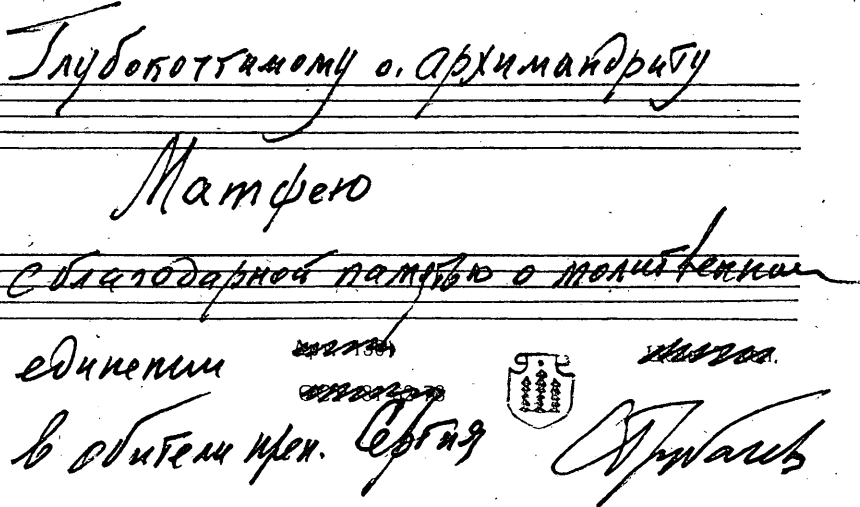 Глубокочтимому о. архимандриту
Матфею
с благодарной памятью о молитвенном
единении
в обители преп. Сергия
СТрубачев